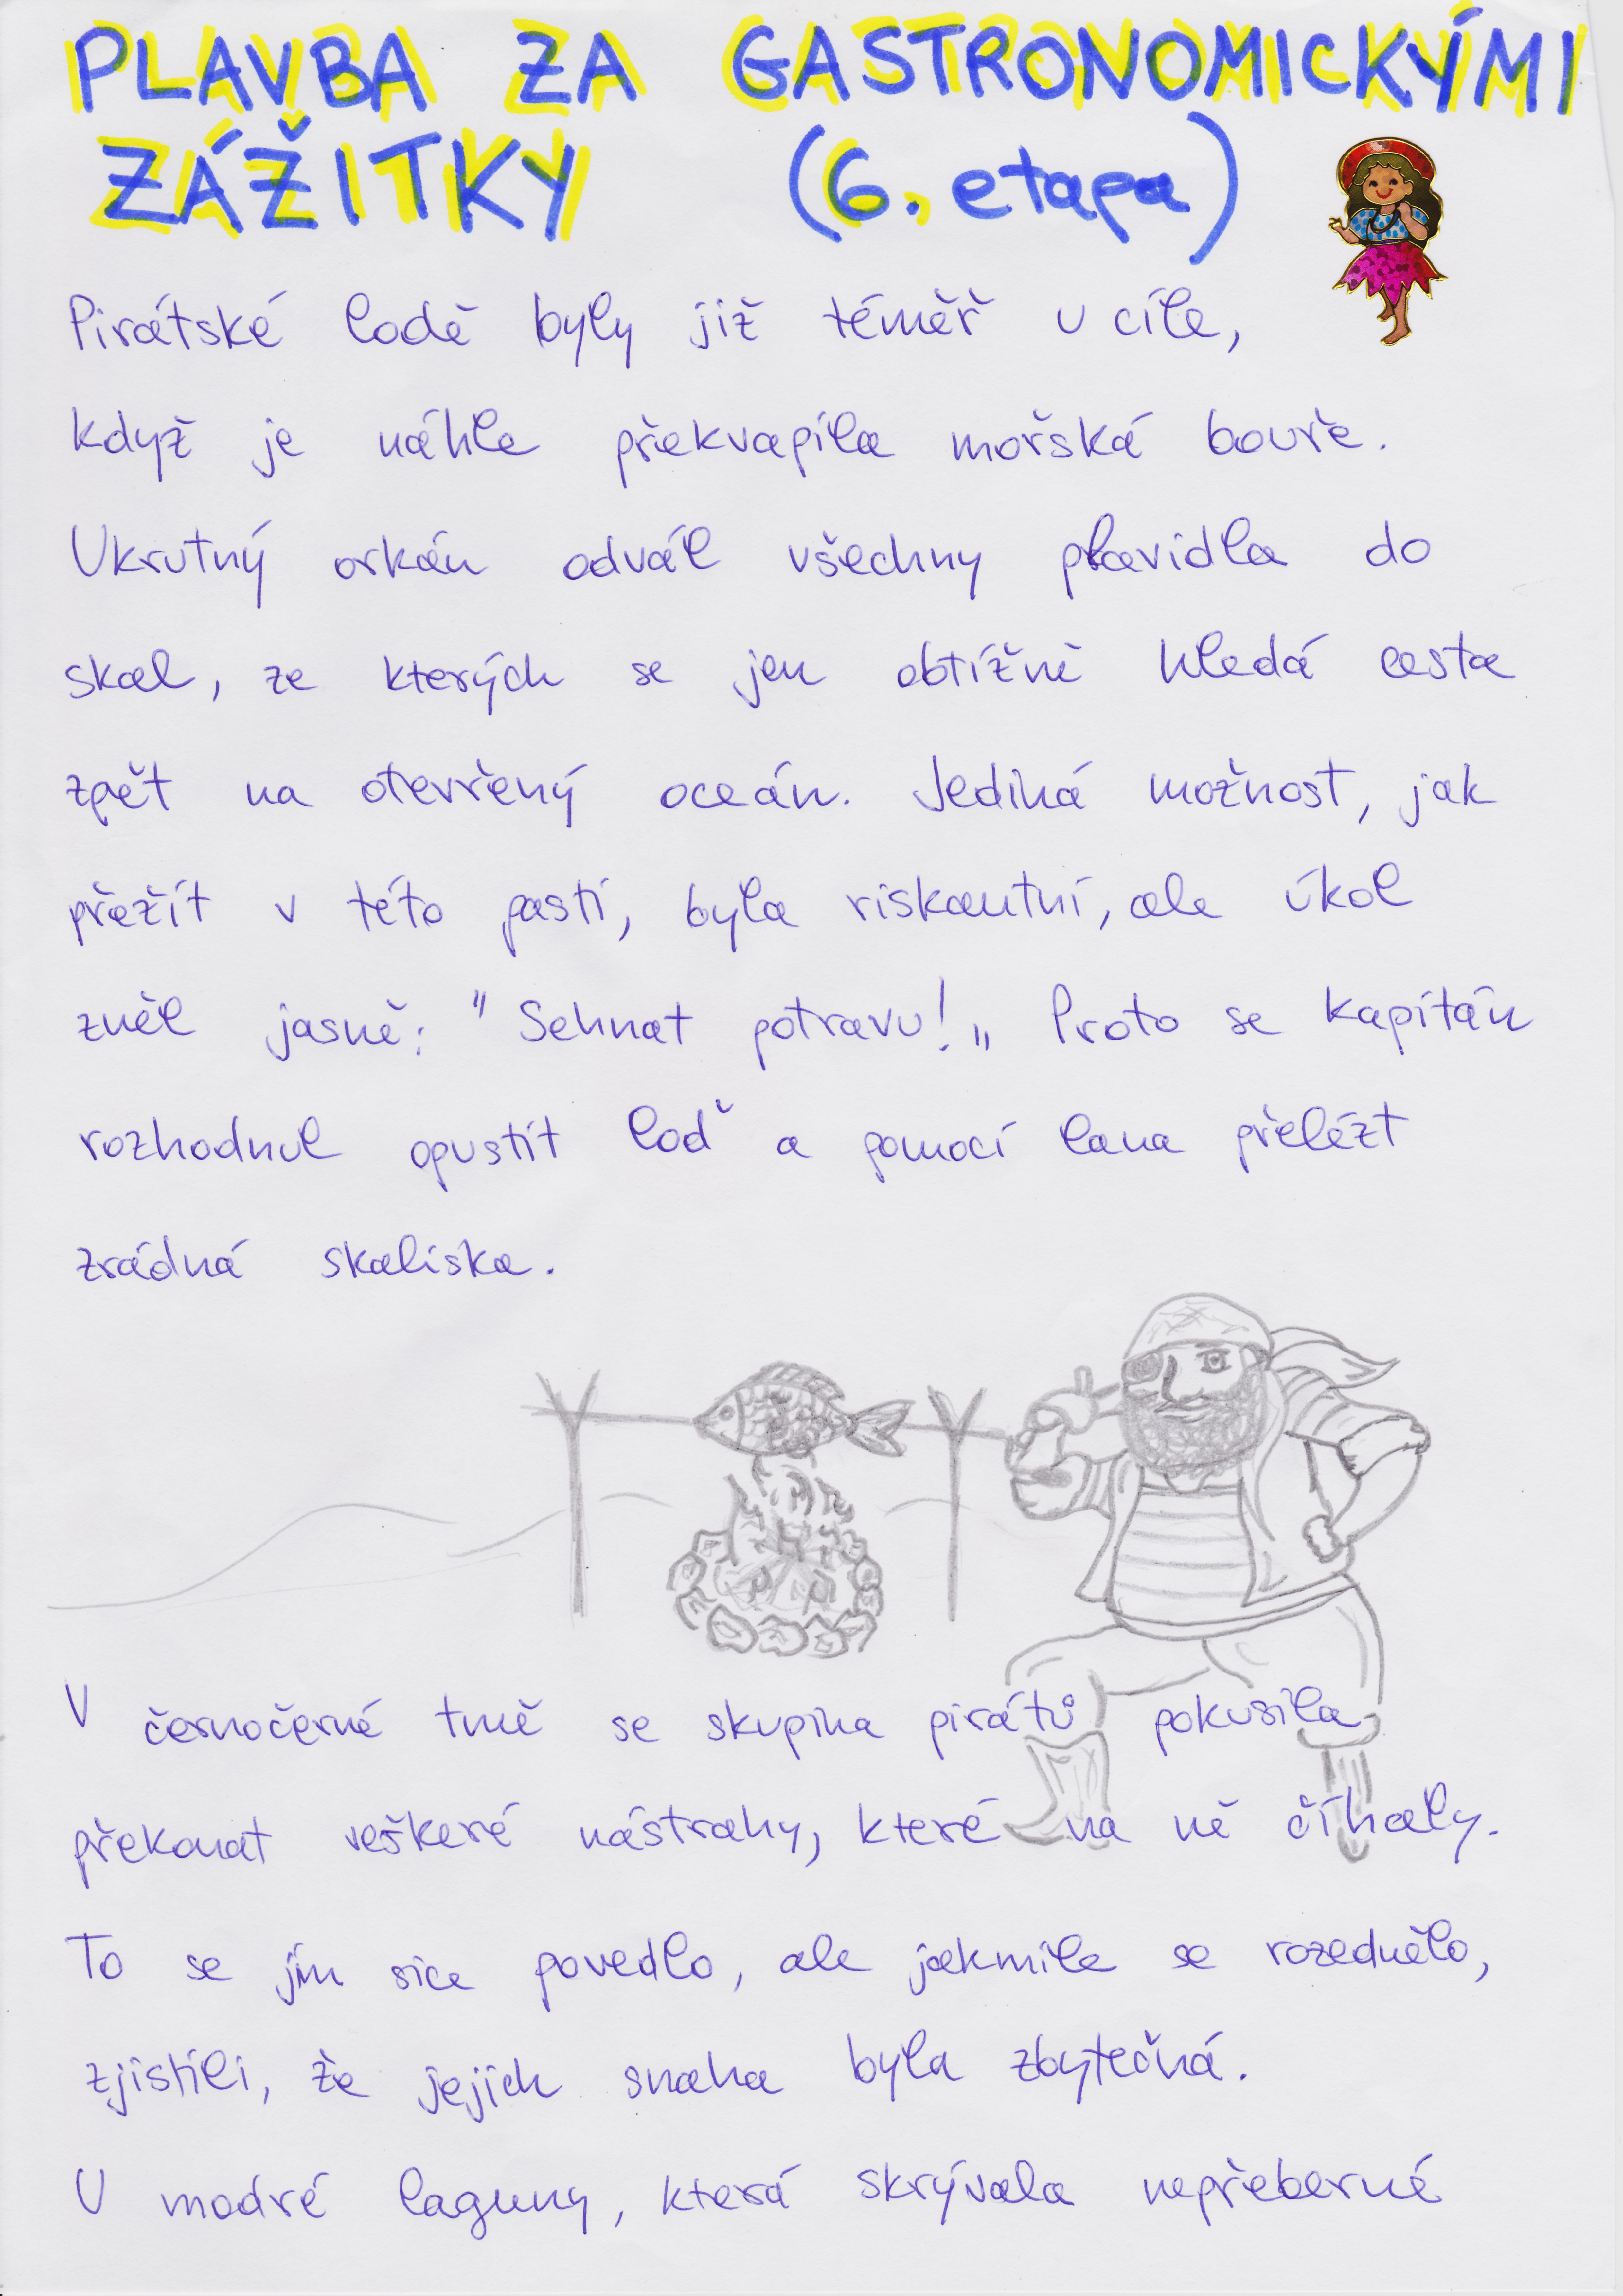 PLAVBA ZA GASTRONOMICKÝMI
ZÁŽITKY (6. etapa)
Pirátské lodě byly již téměř u cíle,
když je náhle překvapila mořská bouře.
Ukrutný orkán odvál všechny plavidla do
skal, ze kterých se jen obtížně hledá cesta
zpět na otevřený oceán. Jediná možnost, jak
přežít v této pasti, byla riskantní, ale úkol
zněl jasně: "Sehnat potravu!„ Proto se kapitán
rozhodnul opustit loď a pomocí lana přelézt
zrádná skaliska.
V černočerné tmě se skupina pirátů pokusila
překonat veškeré nástrahy, které na ně číhaly.
To se jim sice povedlo, ale jakmile se rozednělo,
zjistili, že jejich snaha byla zbytečná.
U modré laguny, která skrývala nepřeberné